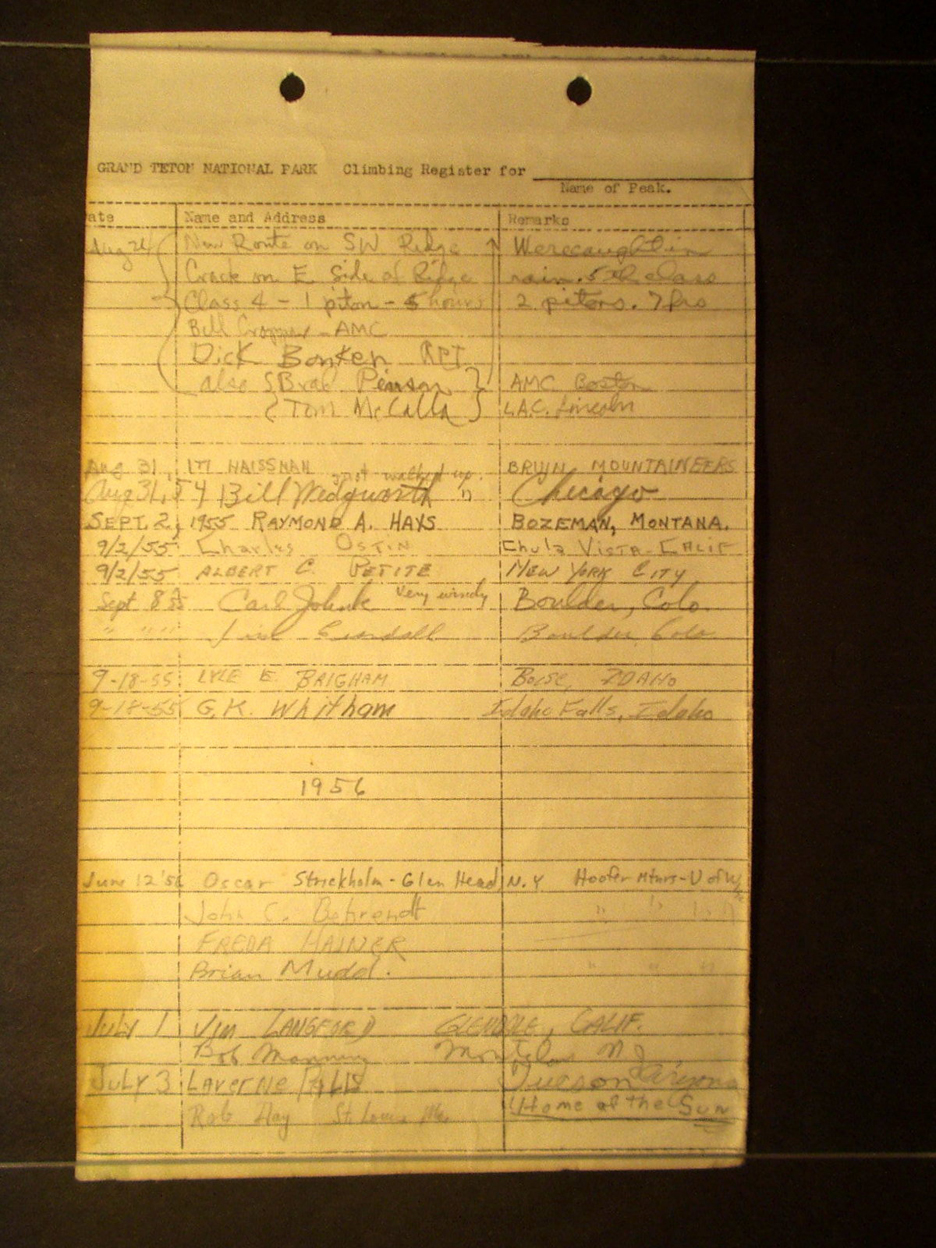 GRAND TETON NATIONAL PARK Climbing Register for
Name of Peak.
ate Name and Address Remarks
Aug 24 New Route on SW Ridge We were caught in
Crack on E Side of Ridge rain. 5th class
Class 4 - 1 piton - 5 hours 2 pitons. 7 hrs
Bill Cropper - AMC
Dick Bonker RPI
also Brad AMC Boston
Tom McCalla L.A.C. Lincoln
Aug 31, HAISSMAN just walked up. BRUIN MOUNTAINEERS
Aug 31, Bill Wedgworth " Chicago
SEPT. 2, 1955 RAYMOND A. HAYS BOZEMAN, MONTANA.
9/2/55 Charles OSTIN Chula Vista - CALIF
9/2/55 ALBERT C. PETITE NEW YORK CITY
Sept 8 55 Carl Very windy Boulder, Colo.
" " " Crandall Boulder, Colo.
9-18-55 LYLE E. BRIGHAM BOISE, IDAHO
9-18-55 G.K. Whitham Idaho Falls, Idaho
1956
June 12 '56 Oscar Strickholm - Glen Head N.Y Hoofer Mtnrs - U of Wis
John C. Behrendt " " "
FREDA HAINER
Brian Mudd. " " "
July 1 JIM LANGFORD GLENDALE, CALIF.
Bob Manning N.J.
JULY 3 LAVERNE Tucson Arizona
Rob Hay St. Louis, Mo "Home of the Sun